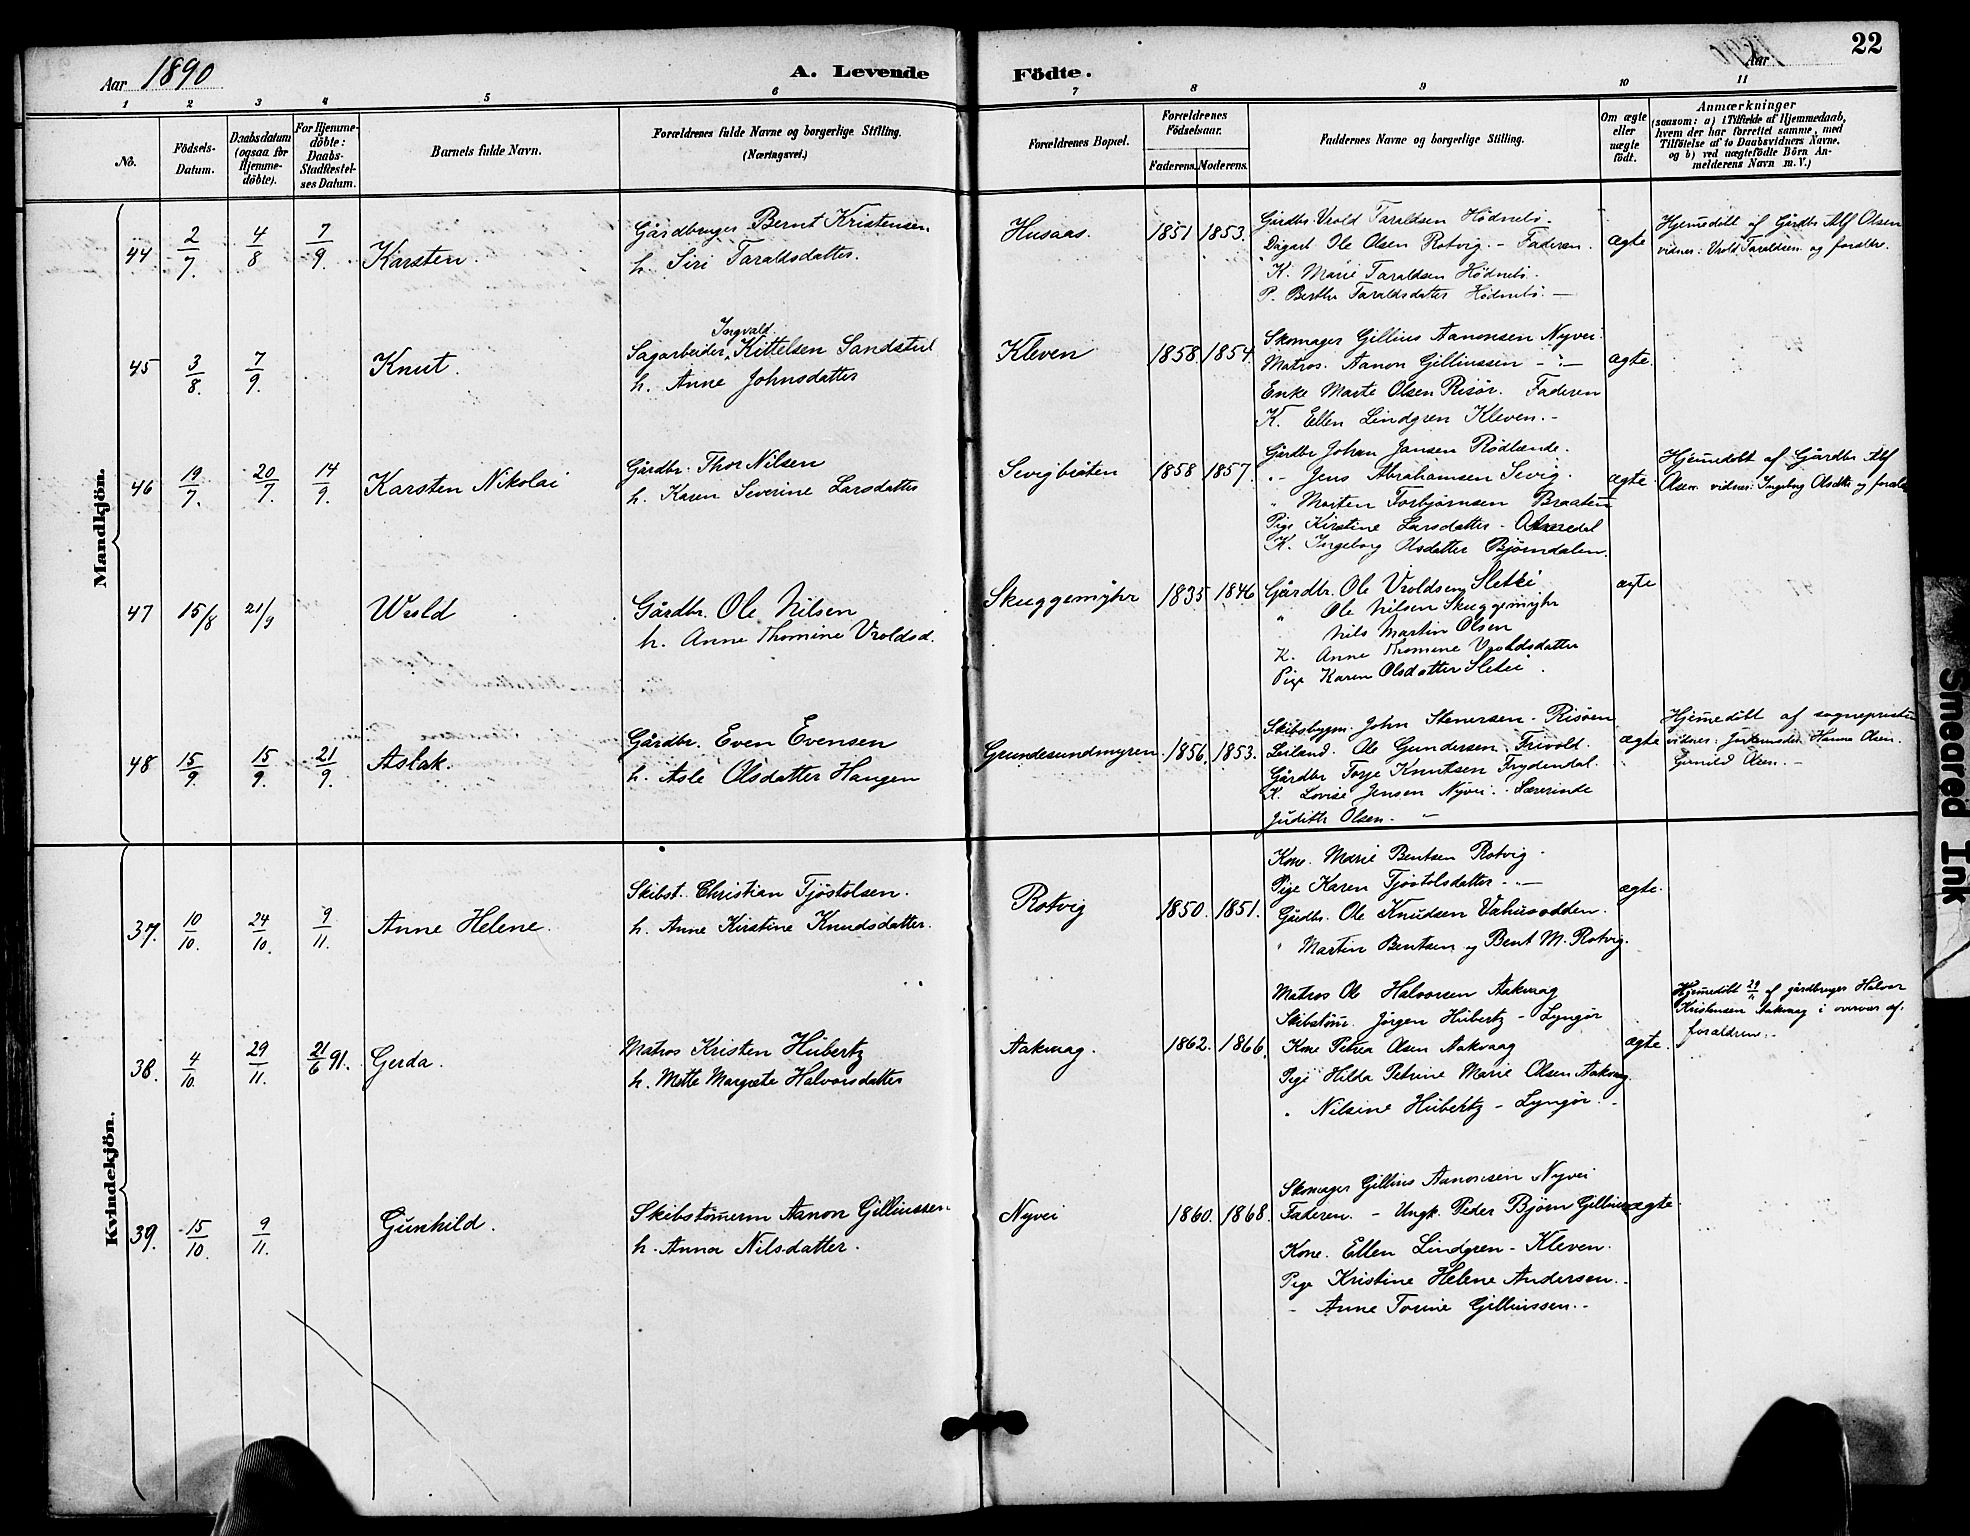 Aar 1890
A. Levende
Födte.
Aar
22
1 2 3 4 5 6 7 8 9 10 11
No.
Födsels-Datum.
Daabsdatum (ogsaa for Hjemme-döbte).
For Hjemme-döbte: Daabs-Stadfæstel-ses Datum.
Barnets fulde Navn.
Forældrenes fulde Navne og borgerlige Stilling. (Næringsvei.)
Forældrenes Bopæl.
Forældrenes Födselsaar.
Faderens. Moderens.
Faddernes Navne og borgerlige Stilling.
Om ægte eller uægte födt.
Anmærkninger
(saasom: a) i Tilfælde af Hjemmedaab, hvem der har forrettet samme, med Tilföielse af to Daabsvidners Navne, og b) ved uægtefödte Börn An-melderens Navn m. V.)
Mandkjön.
44 2/7. 4/8 7/9. Karsten
Gårdbruger Bernt Kristensen
h. Siri Taraldsdatter.
Husaas. 1851 1853.
Gårdbr. Vrold Taraldsen Hödnebö.
Dagarb. Ole Olsen Rotvig. - Faderen.
K. Marie Taraldsen Hödnebö.
P. Berthe Taraldsdatter Hödnebö. —
ægte
Hjemmedöbt af Gårdbr. Alf Olsen
vidner: Vrold Taraldsen og forældre.
45 3/8. 7/9. Knut.
Ingvald
Sagarbeider Kittelsen Sandstul
h. Anne Johnsdatter
Kleven 1858 1854.
Skomager Gillius Aanonsen Nyvei.
Matros. Aanon Gilliussen - " -
Enke Marte Olsen Risör. Faderen
K. Ellen Lindgren Kleven. -
ægte.
46 19/7. 20/7. 14/9. Karsten Nikolai
Gårdbr. Thor Nilsen
h. Karen Severine Larsdatter
1858 1857.
Gårdbr Johan Jansen Rödlande.
" - Jens Abrahamsen Sevig.
" Morten Torbjörnsen Braaten
Pige Kirstine Larsdatter -
K. Ingeborg Olsdatter Björndalen.
ægte
Hjemmedöbt af Gårdbr. Alf
Olsen vidner: Ingeborg Olsdtr og
47 15/8 21/9 Wrold
Gårdbr. Ole Nilsen
h. Anne Thomine Vroldsd.
Skuggemyhr 1835 1846
Gårdbr. Ole Vroldsen Sletei
" Ole Nilsen Skuggemyhr
Nils Martin Olsen
K. Anne Thomene Vroldsdatter
Pige Karen Olsdatter Sletei
ægte
48 15/9. 15/9. 21/9. Aslak.
Gårdbr. Even Evensen
h. Asle Olsdatter Haugen
Grundesundmyren. 1856. 1853.
Skibsbygm. John Stenersen - Risöen
Leiland. Ole Gundersen Frivold.
Gårdbr Torje Knutsen Frydendal.
K. Lovise Jensen Nyvei. Lærerinde
Judith Olsen. -
ægte
Hjemmedöbt af sognepresten
vidner: Jorkemoder Hanna Olsen.
Gunild Olsen. -
Kvindekjön.
37. 10/10. 24/10. 9/11. Anne Helene.
Skibst. Christian Tjöstolsen.
h. Anne Kirstine Knudsdatter.
Rotvig 1850. 1851.
Kone. Marie Bentsen Rotvig -
Pige Karen Tjöstolsdatter - " -
Gårdbr. Ole Knudsen Vahusodden.
" Martin Bentsen og Bent M. Rotvig.
ægte.
38. 4/10. 29/11. 21/6 91. Gerda.
Matros Kristen Hübertz
h. Mette Margrete Halvorsdatter
Aakvaag. 1862. 1866.
Matros Ole Halvorsen Aakvaag
Skibstöm. Jörgen Hübertz - Lyngör
Kone Petrea Olsen Aakvaag
Pige Hilda Petrine Marie Olsen Aakvaag.
" Nilsine Hübertz - Lyngör. -
ægte.
Hjemmedöbt 29/11 af gårdbruger Halvor
Kristensen Aakvaag i overvær af
forældrene. -
39. 15/10. 9/11. Gunhild.
Skibstömerm Aanon Gilliussen
h. Anna Nilsdatter.
Nyvei 1860. 1868.
Skomager Gillius Aanonsen Nyvei
Faderen. - Ungk. Peder Björn Gilliussen
Kone. Ellen Lindgren - Kleven.
Pige Kristine Helene Andersen. -
- Anne Tomine Gilliussen. -
ægte.
Smeared Ink